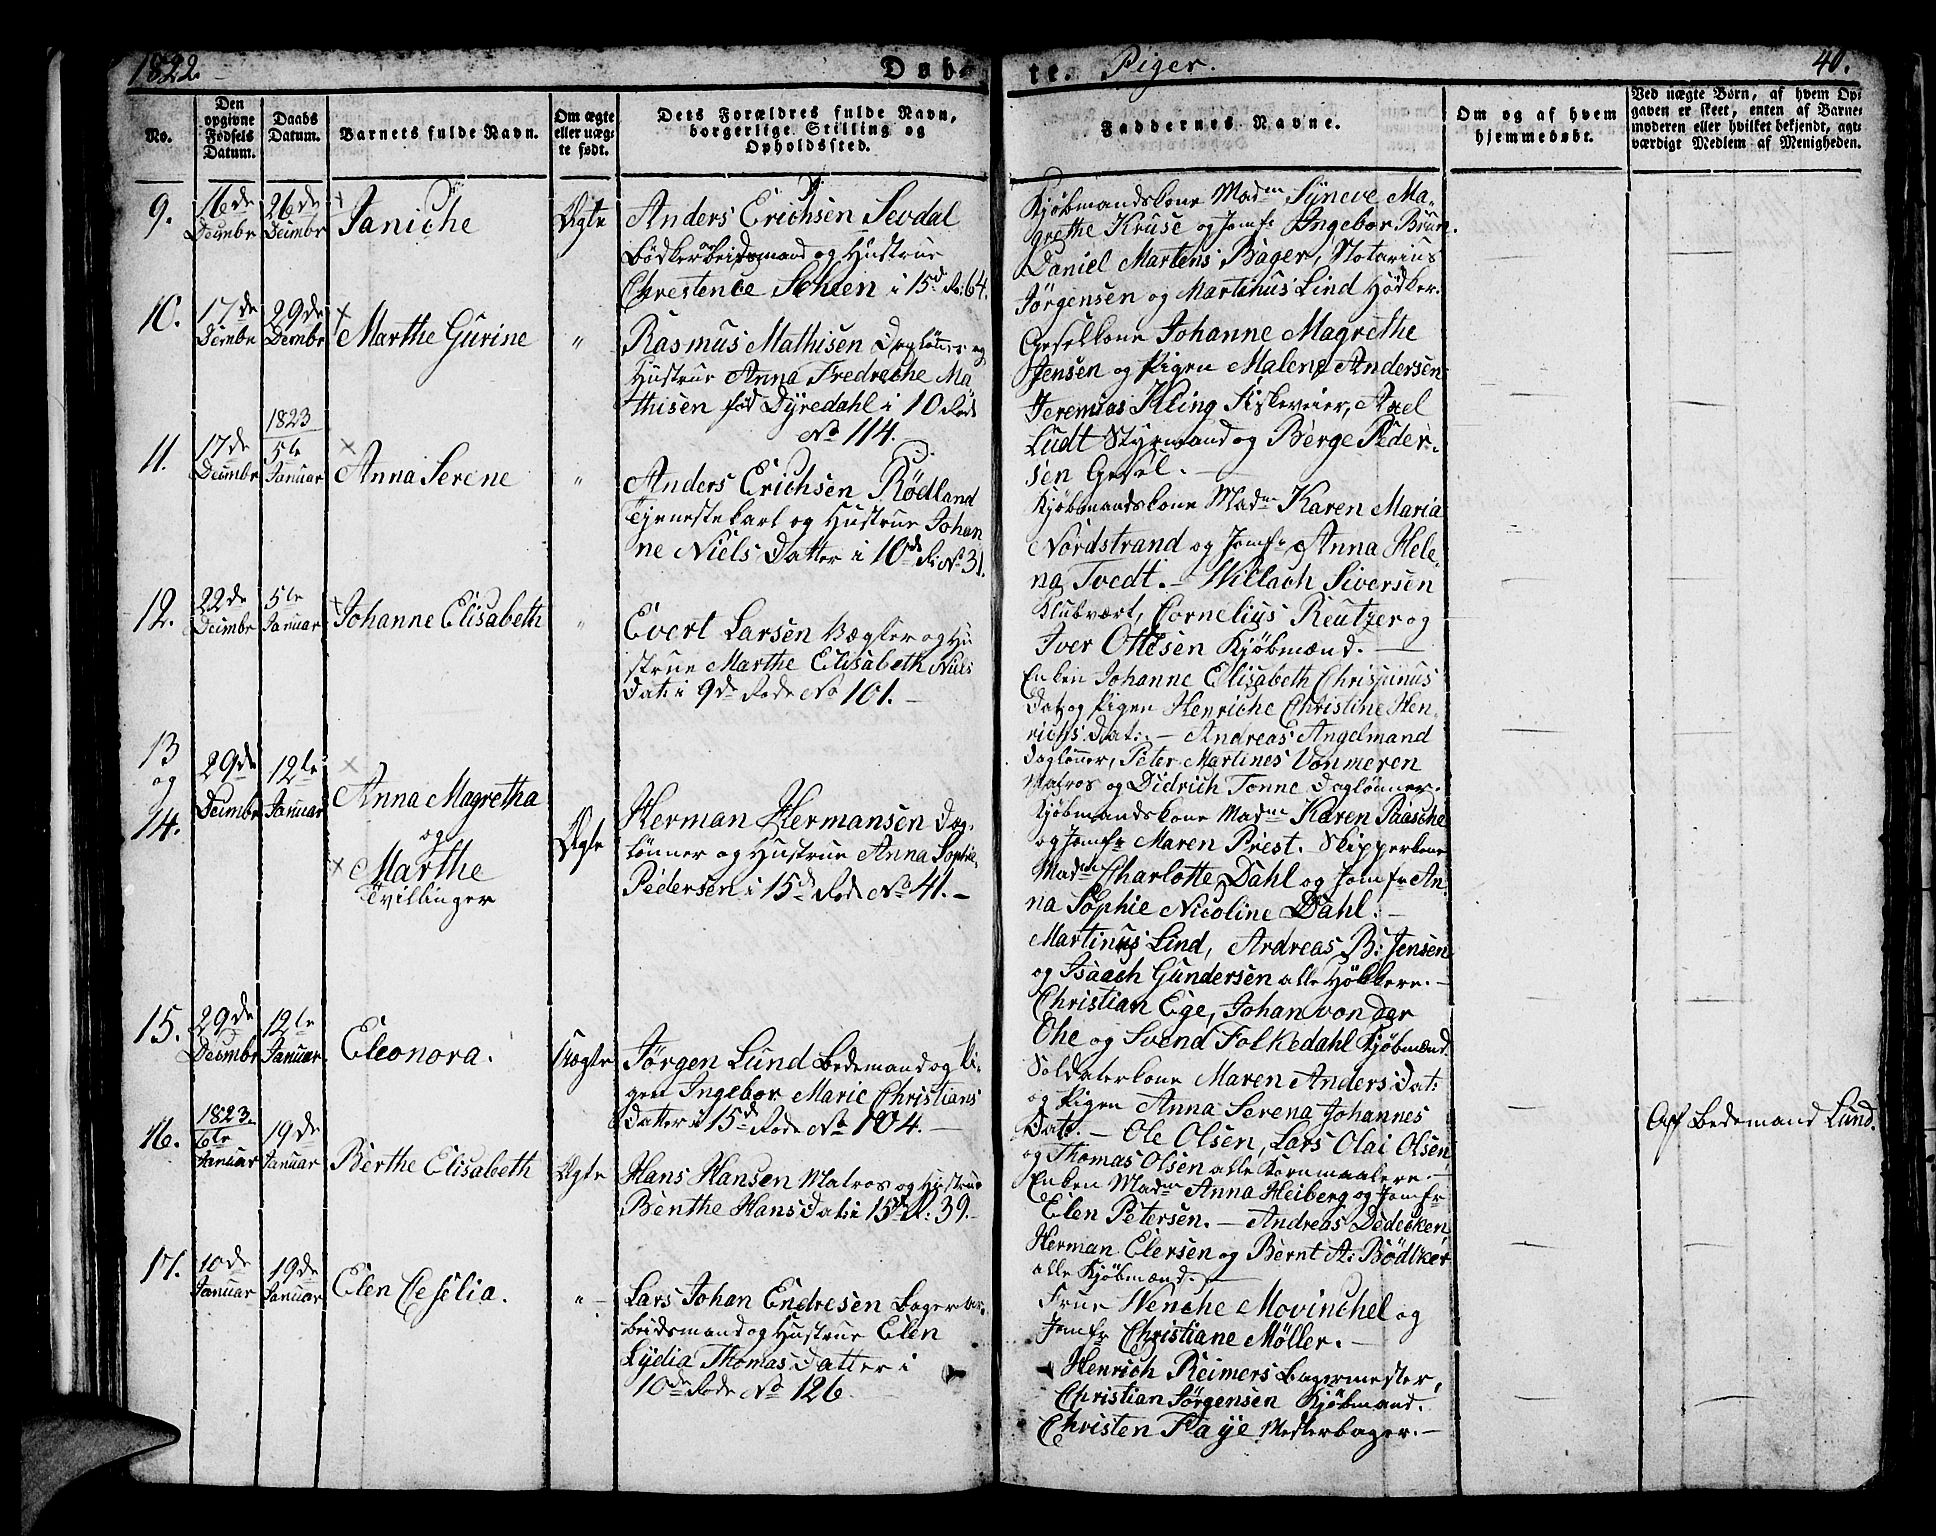 1822.
Døb-
te. Piger.
40.
No.
Den opgivne Fødsels Datum.
Daabs Datum.
Barnets fulde Navn.
Om ægte eller uægte født.
Dets Forældres fulde Navn, borgerlige Stilling og Opholdssted.
Faddernes Navne.
Om og af hvem hjemmedøbt.
Ved uægte Børn, af hvem Opgaven er skeet, enten af Barnemoderen eller hvilket bekjendt, agtværdigt Medlem af Menigheden.
9.
16de Decmbr
26de Decmbr
Janiche
Ægte
Anders Erichsen Sevdal
Bødker arbeidsmand og Hustrue
Chrestence Schien i 15d Ro: 64.
Kjøbmandskone Madm Syneve Ma-
grethe Kruse og Jomfr Ingebor Brun.
Daniel Martens Bager, Notarius
Jørgensen og Martinus Lind Høcker.
10.
17de Decmbr
29de Decmbr
Marthe Gurine
"
Rasmus Mathisen Dagløner og
Hustrue Anna Fredreche Ma-
thisen fød Dyredahl i 10 Rode
No 114.
Gesellkone Johanne Magrethe
Jensen og Pigen Malene Andersen
Jeremias Kling Fiskeveier, Axel
Ludt Styrmand og Berge Peder-
sen Gesel.
11.
17de Decmbr
1823
5te Januar
Anna Serene
"
Anders Erichsen Rødland
Tjenestekarl og Hustrue Johan
ne Niels Datter i 10de R: No 31.
Kjøbmandskone Madm Karen Maria
Nordstrand og Jomfr Anna Hele-
na Tvedt. - Willach Siversen
Klubvært, Cornelius Reutzer og
Iver Ottesen Kjøbmænd.
12.
22de Decmbr
5te Januar
Johanne Elisabeth
"
Evert Larsen Vægter og Hu
strue Marthe Elisabeth Niels
Dat: i 9de Rode No 101.
Enken Johanne Elisabeth Chrisjinus
Dat: og Pigen Henriche Christine Hen-
richs Dat: - Andreas Angelmand
Dagløner, Peter Martines Vonmeren
Matros og Didrich Tonne Dagløner.
13
og
14.
29de
Decmbr
12te
Januar
Anna Magretha
og
Marthe
Tvillinger
Ægte
Herman Hermansen Dag-
lønner og Hustrue Anna Sophie
Pedersen i 15d Rode No 41.
Kjøbmandskone Madm Karen Paasche
og Jomfr Maren Prest. Skipperkone
Madm Charlotte Dahl og Jomfr An-
na Sophie Nicoline Dahl:
Martinus Lind, Andreas B: Jensen
og Isaach Gundersen alle Høkkere.
Christian Ege, Johan von der
Ohe og Svend Folkedahl Kjøbmænd.
15.
29de Decmbr
12te Januar.
Eleonora.
Uægte
Jørgen Lund Bedemand og Pi-
gen Ingebor Marie Christians
Datter i 15d Rode No 104.
Soldaterkone Maren Anders Dat:
og Pigen Anna Serena Johannes
Dat: - Ole Olsen, Lars Olai Olsen
og Thomas Olsen alle Kornmaalere
Af Bedemand Lund.
16.
1823.
6te Januar
19de Januar
Berthe Elisabeth
Ægte
Hans Hansen Matros og Hustrue
Benthe Hans Dat: i 15de R: 39.
Enken Madm Anna Heiberg og Jomfr
Elen Petersen. - Andreas Dedecken
Herman Elersen og Bernt A: Bødtker
alle Kjøbmænd.
17.
10de Januar
19de Januar
Elen Ceselia.
"
Lars Johan Endresen Bager ar-
beidsmand og Hustrue Elen
Lydia Thomas Datter i
10de Rode No 126
Frue Wenche Movinchel og
Jomfr Christiane Møller.
Henrich Reimers Bagermester,
Christian Jørgensen Kjøbmand.
Christen Faye Mesterbager.